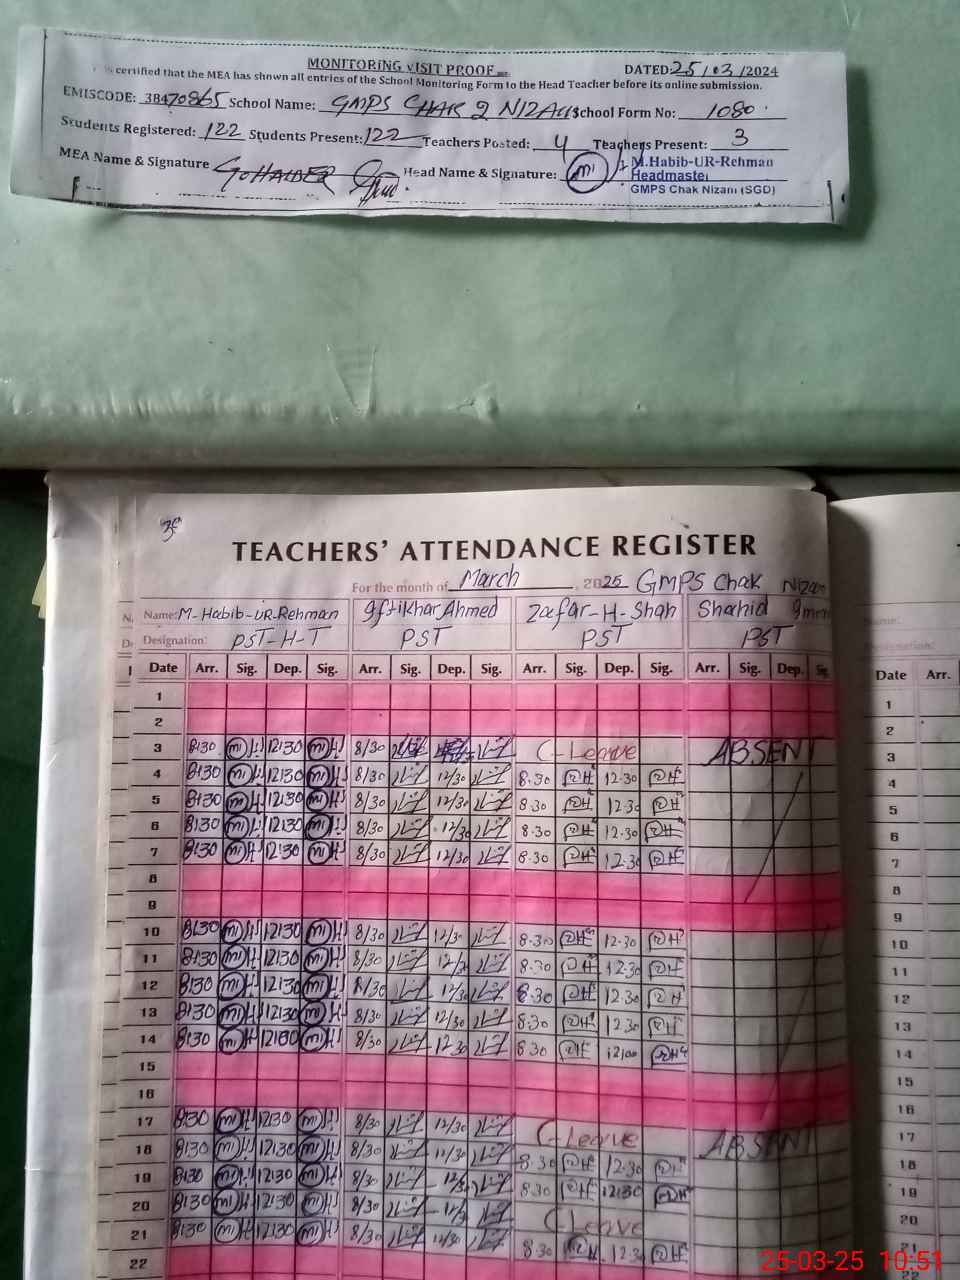 MONITORING VISIT PROOF DATED: 25/03/2024
is certified that the MEA has shown all entries of the School Monitoring Form to the Head Teacher before its online submission.
EMISCODE: 38470865 School Name: GMPS CHAK 2 NIZAM School Form No: 1080
Students Registered: 122 Students Present: 122 Teachers Posted: 4 Teachers Present: 3
MEA Name & Signature Head Name & Signature: M.Habib-UR-Rehman
Headmaster
GMPS Chak Nizam (SGD)
TEACHERS' ATTENDANCE REGISTER
For the month of March, 2025 GMPS Chak Nizam
Name: M-Habib-UR-Rehman Iftikhar Ahmed Zafar-H-Shah Shahid
Designation: PST-H-T PST PST PST
Date Arr. Sig. Dep. Sig. Arr. Sig. Dep. Sig. Arr. Sig. Dep. Sig. Arr. Sig. Dep. Sig.
1
2
3 8:30 12:30 8/30 C-Leave ABSENT
4 8:30 12:30 8/30 12/30 8.30 12.30
5 8:30 12:30 8/30 12/30 8.30 12.30
6 8:30 12:30 8/30 12/30 8.30 12.30
7 8:30 12:30 8/30 12/30 8.30 12.30
8
9
10 8:30 12:30 8/30 12/30 8.30 12.30
11 8:30 12:30 8/30 12/30 8.30 12.30
12 8:30 12:30 8/30 12/30 8.30 12.30
13 8:30 12:30 8/30 12/30 8.30 12.30
14 8:30 12:30 8/30 12.30 8.30 12.00
15
16
17 8:30 12:30 8/30 12/30 C-Leave ABSENT
18 8:30 12:30 8/30 12/30 8.30 12.30
19 8:30 12:30 8/30 12/30 8.30 12.30
20 8:30 12:30 8/30 C-Leave
21 8:30 12:30 8/30 12/30 8.30 12.30
22
Date Arr.
1
2
3
4
5
6
7
8
9
10
11
12
13
14
15
16
17
18
19
20
21
22
25-03-25 10:51